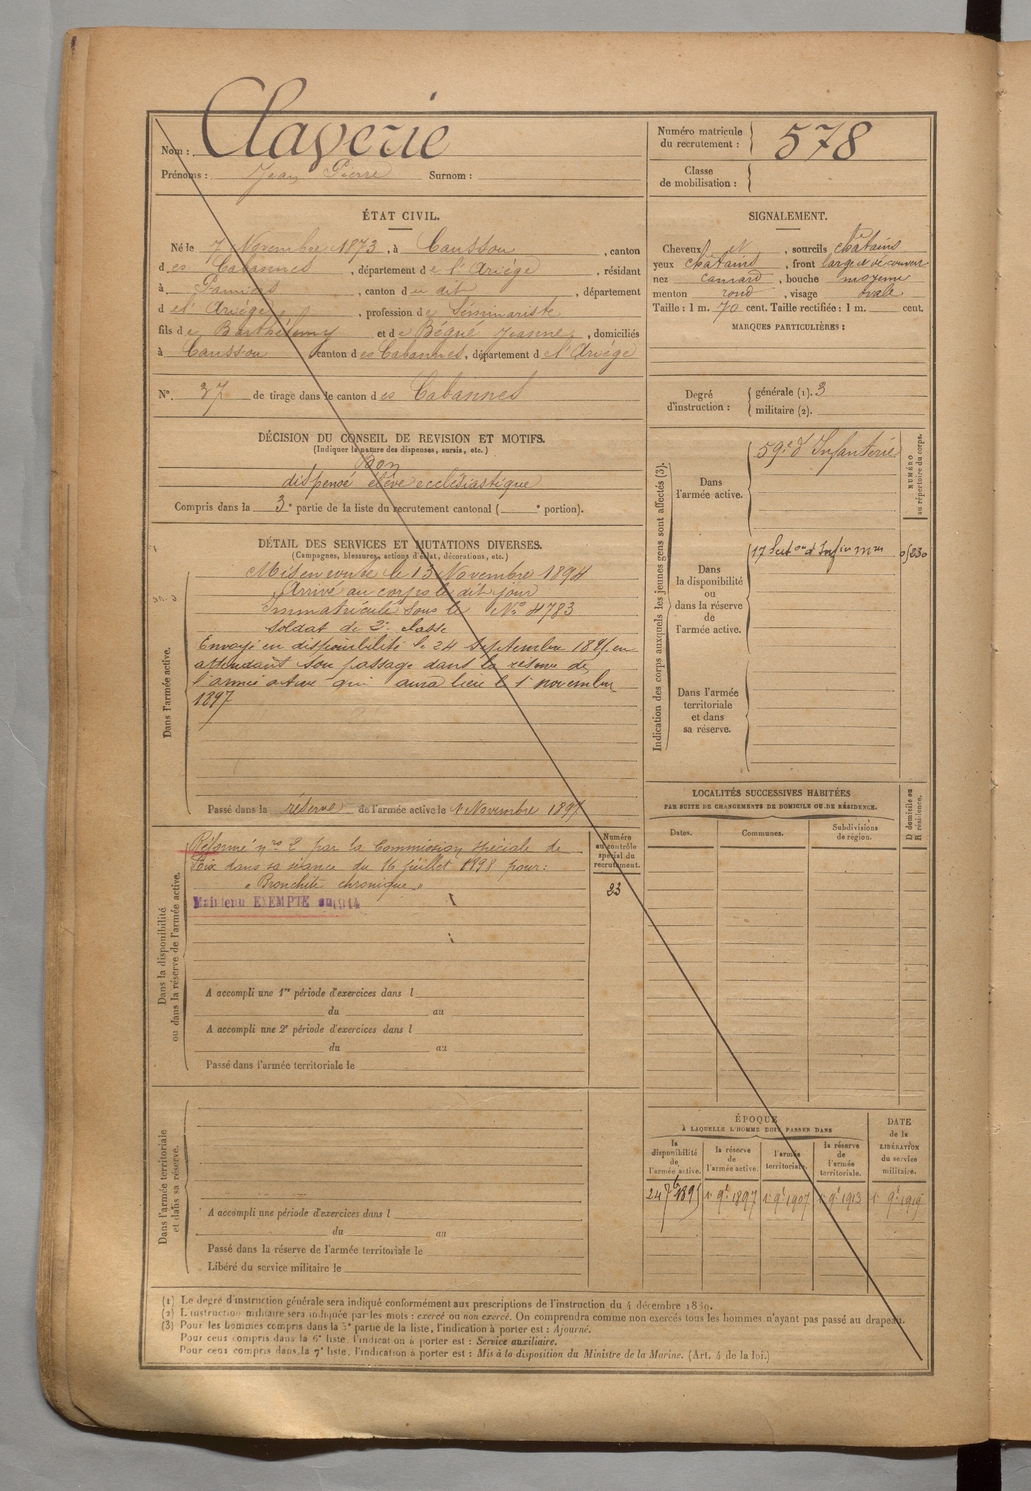 Nom : Clagerie
Prénoms : Jean Pierre Surnom :
Numéro matricule du recrutement : 578
Classe de mobilisation :
ÉTAT CIVIL.
Né le 7 Novembre 1873, à Caussou, canton
des Cabannes, département de l'Ariège, résidant
à Pamiers, canton du dit, département
de l'Ariège, profession de Séminariste
fils de Barthélemy et de Bégué Jeanne, domiciliés
à Caussou canton des Cabannes, département de l'Ariège
N° 37 de tirage dans le canton des Cabannes
SIGNALEMENT.
Cheveux et, sourcils châtains
yeux châtains, front large et découvert
nez camard, bouche moyenne
menton rond, visage ovale
Taille : 1 m. 70 cent. Taille rectifiée : 1 m. cent.
MARQUES PARTICULIÈRES :
Degré d'instruction : générale (1). 3
militaire (2).
DÉCISION DU CONSEIL DE REVISION ET MOTIFS.
(Indiquer la nature des dispenses, sursis, etc.)
Bon
dispensé élève ecclésiastique
Compris dans la 3e partie de la liste du recrutement cantonal ( e portion).
DÉTAIL DES SERVICES ET MUTATIONS DIVERSES.
(Campagnes, blessures, actions d'éclat, décorations, etc.)
Dans l'armée active.
Mis en route le 13 Novembre 1894
Arrivé au corps le dit jour
Immatriculé sous le No 4783
soldat de 2e classe
Envoyé en disponibilité le 24 septembre 1895 en
attendant son passage dans la réserve de
l'armée active qui aura lieu le 1er novembre
1897
Passé dans la réserve de l'armée active le 1er Novembre 1897
Indication des corps auxquels les jeunes gens sont affectés (3).
NUMÉRO au répertoire du corps.
Dans l'armée active.
59e d'Infanterie
Dans la disponibilité ou dans la réserve de l'armée active.
17 Section d'Infirm mres
Dans l'armée territoriale et dans sa réserve.
LOCALITÉS SUCCESSIVES HABITÉES
PAR SUITE DE CHANGEMENTS DE DOMICILE OU DE RÉSIDENCE.
Dates. Communes. Subdivisions de région. D domicile ou R résidence.
Dans la disponibilité ou dans la réserve de l'armée active.
Numéro au contrôle spécial du recrutement.
23
Réformé no 2 par la Commission spéciale de
Foix dans sa séance du 16 juillet 1898 pour :
« Bronchite chronique »
Maintenu EXEMPTE
A accompli une 1re période d'exercices dans l
du au
A accompli une 2e période d'exercices dans l
du au
Passé dans l'armée territoriale le
Dans l'armée territoriale et dans sa réserve.
A accompli une période d'exercices dans l
du au
Passé dans la réserve de l'armée territoriale le
Libéré du service militaire le
ÉPOQUE
À LAQUELLE L'HOMME DOIT PASSER DANS
la disponibilité de l'armée active. la réserve de l'armée active. l'armée territoriale. la réserve de l'armée territoriale. DATE de la LIBÉRATION du service militaire.
24 7bre 1895 1er 9bre 1897 1er 9bre 1907 1er 9bre 1913 1er 9bre 1919
(1) Le degré d'instruction générale sera indiqué conformément aux prescriptions de l'instruction du 4 décembre 1889.
(2) L'instruction militaire sera indiquée par les mots : exercé ou non exercé. On comprendra comme non exercés tous les hommes n'ayant pas passé au drapeau.
(3) Pour les hommes compris dans la 5e partie de la liste, l'indication à porter est : Ajourné.
Pour ceux compris dans la 6e liste, l'indication à porter est : Service auxiliaire.
Pour ceux compris dans la 7e liste, l'indication à porter est : Mis à la disposition du Ministre de la Marine. (Art. 4 de la loi.)